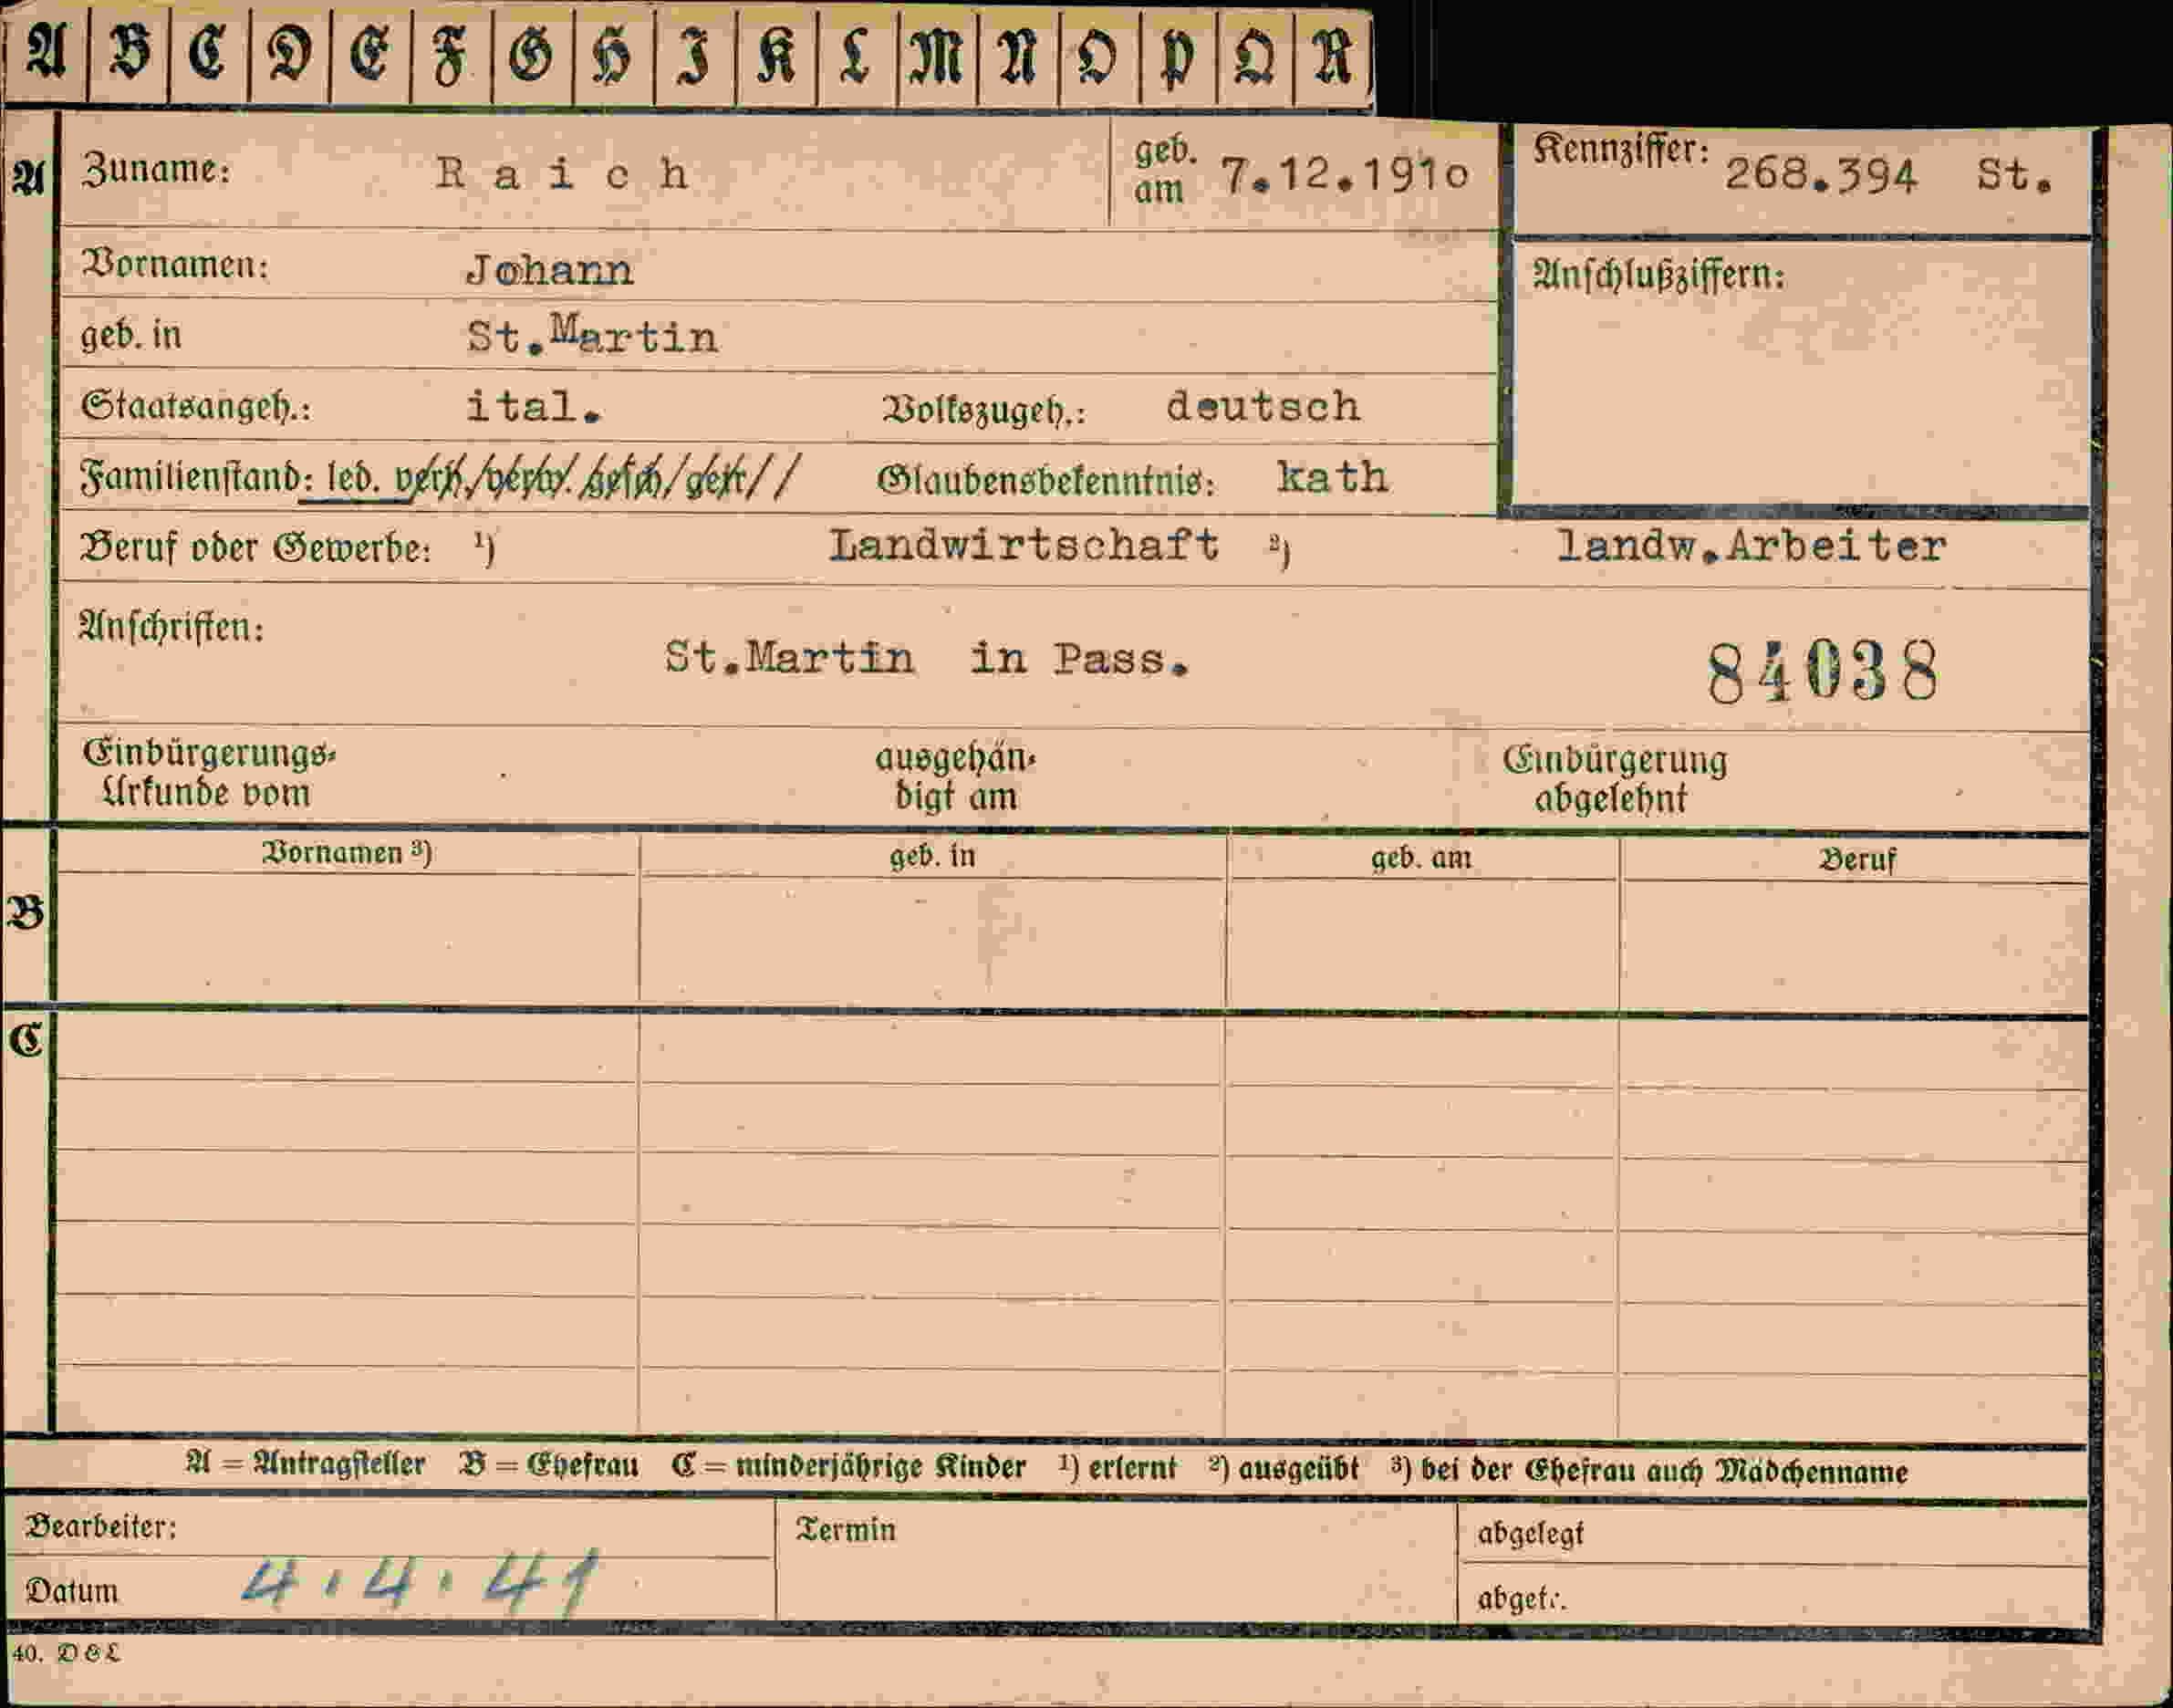 A B C D E F G H I K L M N O P Q R
A Zuname: Raich geb. am 7.12.191o Kennziffer: 268.394 St.
Vornamen: Johann Anschlußziffern:
geb. in St.Martin
Staatsangeh.: ital. Volkszugeh.: deutsch
Familienstand: led. verh. verw. gesch. getr. Glaubensbekenntnis: kath
Beruf oder Gewerbe: ¹) Landwirtschaft ²) landw.Arbeiter
Anschriften:
St.Martin in Pass. 84038
Einbürgerungs- ausgehän- Einbürgerung
Urkunde vom digt am abgelehnt
Vornamen ³) geb. in geb. am Beruf
B
C
A = Antragsteller B = Ehefrau C = minderjährige Kinder ¹) erlernt ²) ausgeübt ³) bei der Ehefrau auch Mädchenname
Bearbeiter: Termin abgelegt
Datum 4.4.41 abgetr.
40. D & L